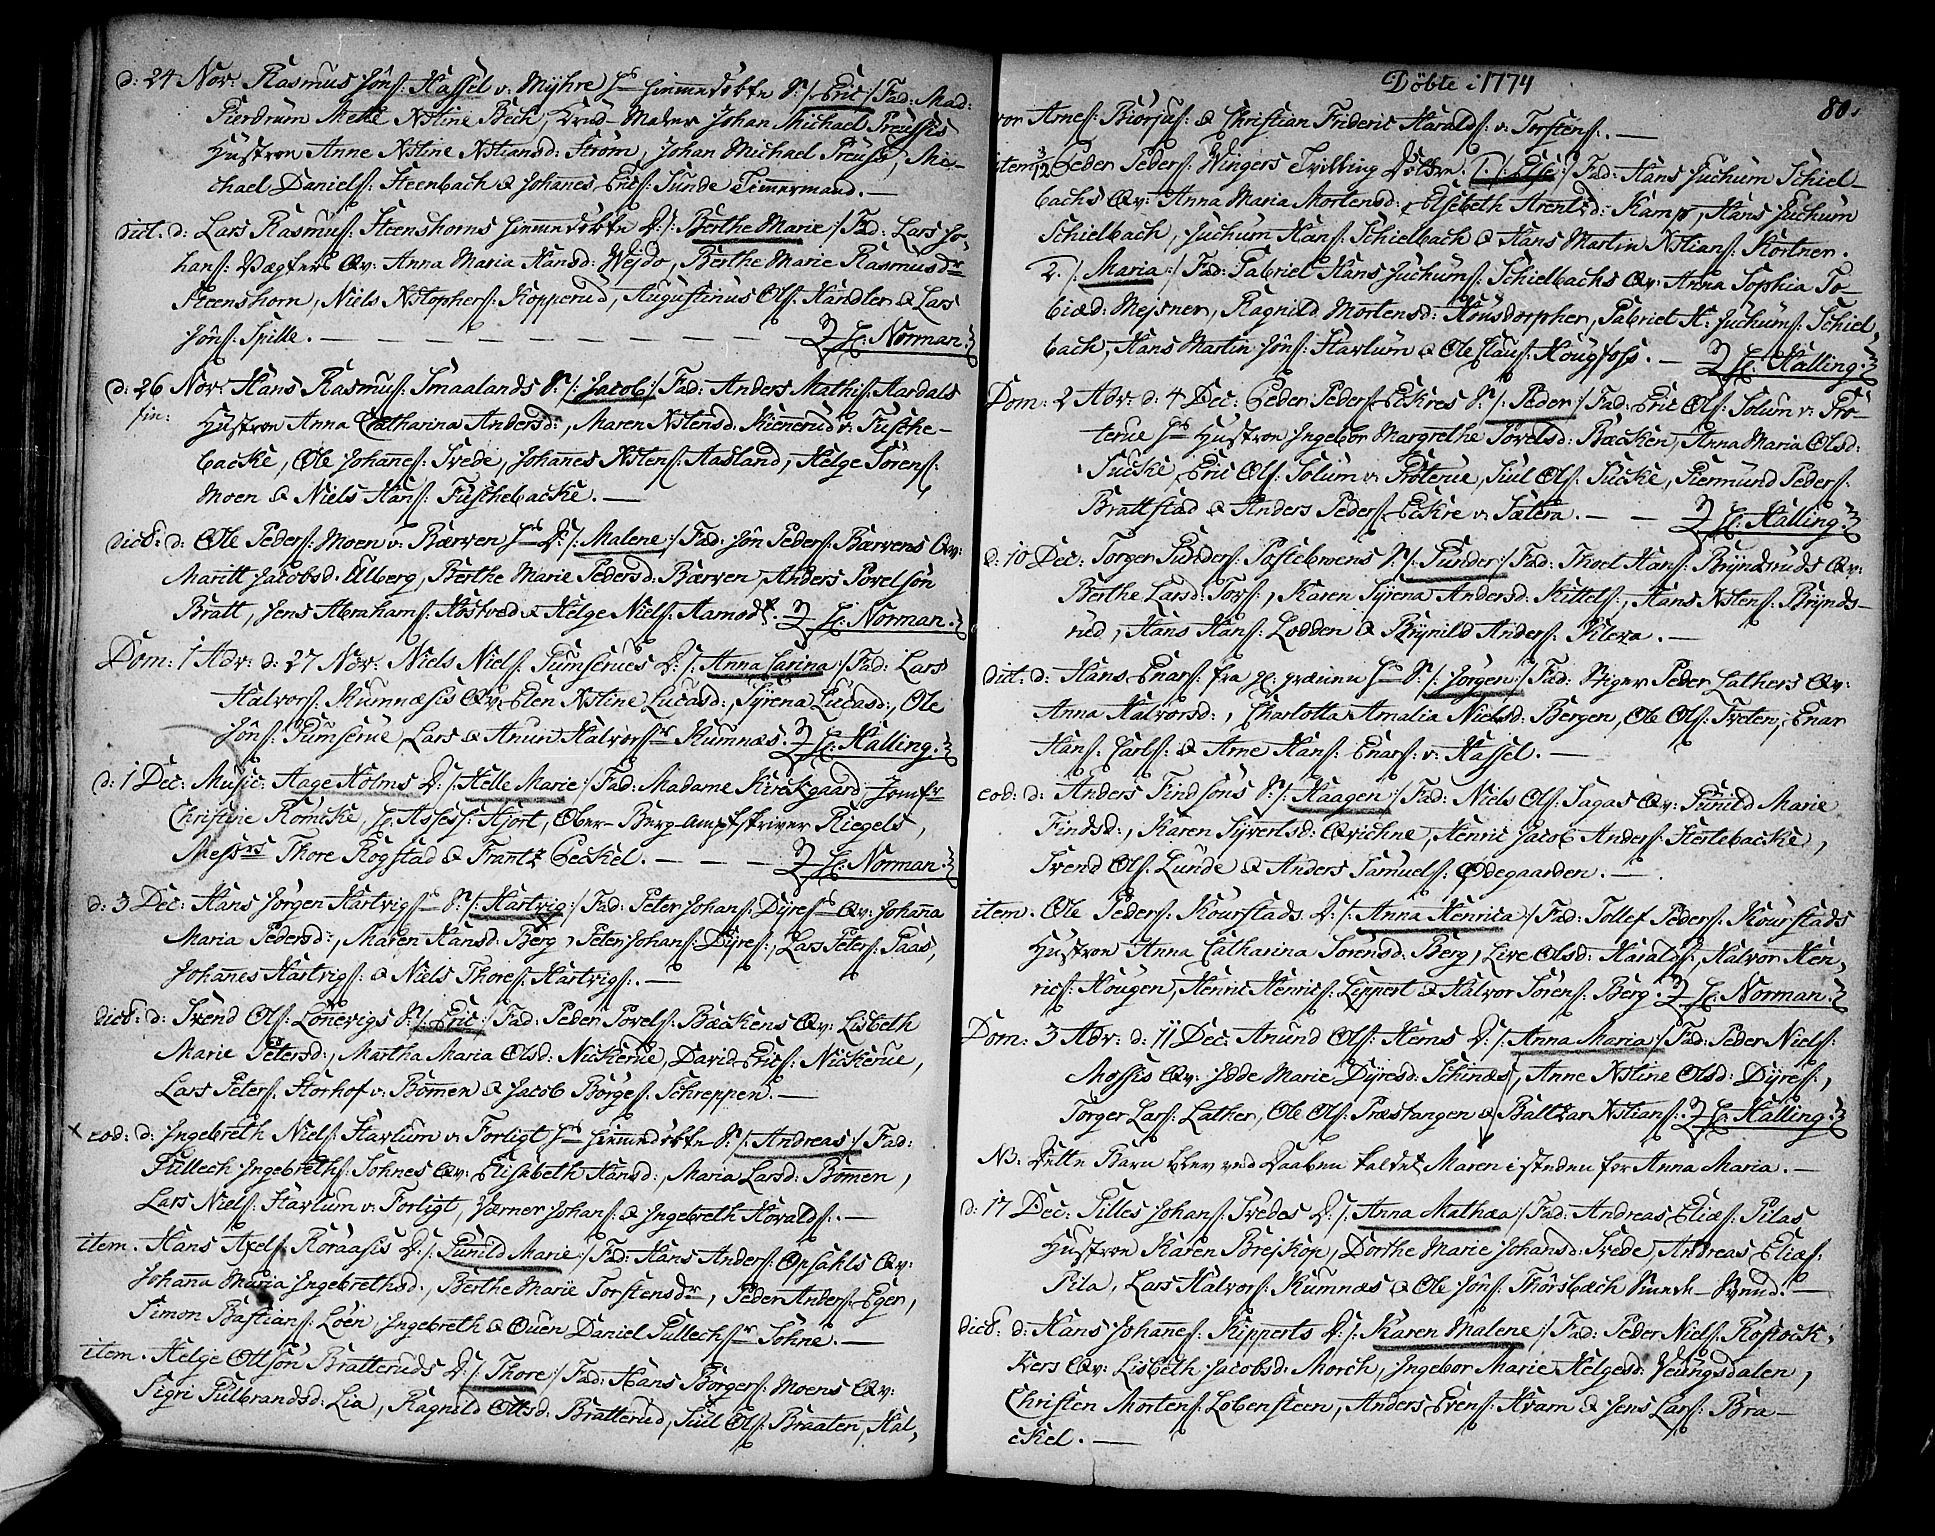 d: 24 Nov: Rasmus Jöns: Hassel v: Myhre Hs hiemedöbte S: /: Eric :/ Fad: Mad:
Bierdrum Mette Nstine Bech, Johan Michael Preussis
Hustroe Anne Nstine Nstiansd: Ström, Johan Michael Preuss, Mi-
chael Daniels: Steenbach & Johanes Erics: Sunde Timmermand. —
dict. d: Lars Rasmus: Steenshorns hiemedöbte D: /: Berthe Marie :/ Fad: Lars Jo-
hans: Vægters Qv: Anna Maria Hansd: Wejdo, Berthe Marie Rasmusdr
Steenshorn, Niels Nstophers: Kopperud, Augustinus Ols: Handler & Lars
Jöns: Spille. — H: Norman.
d: 26 Nov: Hans Rasmus: Smaalands S: /: Jacob :/ Fad: Anders Mathis: Aardals
fin: Hustroe Anna Catharina Andersd:, Maren Nstensd: Kienerud v: Fuske-
backe, Ole Johanes: Svede, Johanes Nstens: Aasland, Helge Sörens:
Moen & Niels Hans: Fuschebacke. —
dict: d: Ole Peders: Moen v: Bærven Hs D: /: Malene :/ Fad: Jön Peders: Bærvens Qv:
Maritt Jacobsd. Ulberg, Berthe Marie Pedersd: Bærven, Anders Povelsön
Bratt, Jens Abrahams: Hostved & Helge Niels: Aamodt. H: Norman.
Dom: 1 Adv: d: 27 Nov: Niels Niels: Gumserues D: /: Anna Carina :/ Fad: Lars
Halvors: Kumnæsis Qv: Elen Nstine Lucasd:, Syrena Lucasd:, Ole
Jöns: Gumserue, Lars & Anun Halvorssr Kumnæs. H: Halling.
d: 1 Dec: Music: Aage Holms D: /: Helle Marie :/ Fad: Madame Kirckgaard, Jomfr
Christine Römcke, H: Assess: Hjort, Ober-Berg-Amptskriver Riegels,
Messrs Thore Rogstad & Frantz Beckel. — H: Norman.
d: 3 Dec: Hans Jörgen Hartvigs: S: /: Hartvig :/ Fad: Peter Johans: Dyres Qv: Johana
Maria Pedersd:, Maren Hansd: Berg, Peter Johans: Dyres:, Lars Peters: Paas,
Johanes Hartvigs: & Niels Thores: Hartvigs:. —
dict: d: Svend Ols: Lönevigs S: /: Eric :/ Fad: Peder Povels: Bæckens Qv: Lisbeth
Marie Petersd:, Martha Maria Olsd: Nickerue, David Erics: Nickerue,
Lars Peters: Storhof v: Bömen & Jacob Börges: Schreppen. —
x eod: d: Ingebreth Niels: Havlum v: Forligt Hs hiemedöbte S: /: Andreas :/ Fad:
Gullech Ingebreths: Sohnes Qv: Elisabeth Hansd:, Maria Larsd: Bömen,
Lars Niels: Havlum v: Forligt, Værner Johans: & Ingebreth Hovalds:. —
item. Hans Axels: Roraasis D: /: Gunild Marie :/ Fad: Hans Anders: Opsahls Qv:
Johana Maria Ingebrethsd:, Berthe Marie Torstensdr, Peder Anders: Eger,
Simon Bastians: Löen, Ingebreth & Ouen Daniel Gullechssr Sohne. —
item. Helge Ottsön Bratteruds D: /: Thore :/ Fad: Hans Börgers: Moens Qv:
Sigri Gulbrandsd: Lia, Ragnild Ottsd: Bratterud, Juul Ols: Braaten, Hal-
Döbte i 1774
80.
vor Arnes: Biorjus: & Christian Frideric Haralds: v: Torstens:. —
item 3/12 Peder Peders: Wingers Tvilling Döttre. 1. /: Else :/ Fad: Hans Juchum Schiel-
bachs Qv: Anna Maria Mortensd:, Elsebeth Arentsd: Kamp, Hans Juchum
Schielbach, Juchum Hans: Schielbach & Hans Martin Nstians: Kortner.
2. /: Maria :/ Fad: Gabriel Hans Juchums: Schielbachs Qv: Anna Sophia To-
biæd: Mejsner, Ragnild Mortensd: Hönsdorpher, Gabriel H: Juchums: Schiel-
bach, Hans Martin Jöns: Havlum & Ole Claus: Hougfoss. — H: Halling.
Dom: 2 Adv: d: 4 Dec: Peder Peders: Eckres S: /: Peder :/ Fad: Eric Ols: Solum v: Pro-
terue Hs Hustroe Ingebor Margrethe Povelsd: Bæcken, Anna Maria Olsd:
Sucke, Eric Ols: Solum v: Proterue, Juul Ols: Sucke, Giermund Peders:
Brattstad & Anders Peders: Eckre v: Sætera. — H: Halling.
d: 10 Dec: Torger Gunders: Postebmens S: /: Gunder :/ Fad: Thoel Hans: Bryndsruds Qv:
Berthe Larsd: Tors:, Karen Syrena Andersd: Kittels:, Hans Nstens: Brynds-
rud, Hans Hans: Lodden & Brynild Anders: Kleva. —
dict. d: Hans Enars: fra Hs S: /: Jörgen :/ Fad: Stiger Peder Lathers Qv:
Anna Halvorsd:, Charlotta Amalia Nielsd: Bergen, Ole Ols: Tveten, Enar
Hans: Carls: & Arne Hans: Enars: v: Hassel. —
eod: d: Anders Findsöns S: /: Haagen :/ Fad: Niels Ols: Sagas Qv: Gunild Marie
Findsd:, Karen Syvertsd: Qvichne, Henric Jacob Anders: Stertebacke,
Svend Ols: Lunde & Anders Samuels: Ødegaarden. —
item. Ole Peders: Kourstads D: /: Anna Henrica :/ Fad: Tollef Peders: Kourstads
Hustroe Anna Catharina Sörensd: Berg, Live Olsd: Haralds:, Halvor Hen-
rics: Hougen, Henric Henrics: Lippert & Halvor Sörens: Berg. H: Norman.
Dom: 3 Adv: d: 11 Dec: Anund Ols: Hems D: /: Anna Maria :/ Fad: Peder Niels:
Mossis Qv: Idde Marie Dyresd: Schinæs, Anne Nstine Olsd: Dyres:,
Torger Lars: Lather, Ole Ols: Præstangen & Baltzar Nstians:. H: Halling.
NB: Dette Barn blev ved Daaben kaldet Maren i steden for Anna Maria. —
d: 17 Dec: Gilles Johans: Svedes D: /: Anna Mathea :/ Fad: Andreas Eliæs: Pilas
Hustroe Karen Brejskop, Dorthe Marie Johansd: Svede, Andreas Eliæs:
Pila, Lars Halvors: Kumnæs & Ole Jöns: Thorsbæch Smede-Svend. —
dict: d: Hans Johanes: Kipperts D: /: Karen Malene :/ Fad: Peder Niels: Rostock-
kers Qv: Lisbeth Jacobsd: Morch, Ingebor Marie Helgesd: Veungsdalen,
Christen Mortens: Lobensteen, Anders Evens: Kvam & Jens Lars: Bra-
ckel. —